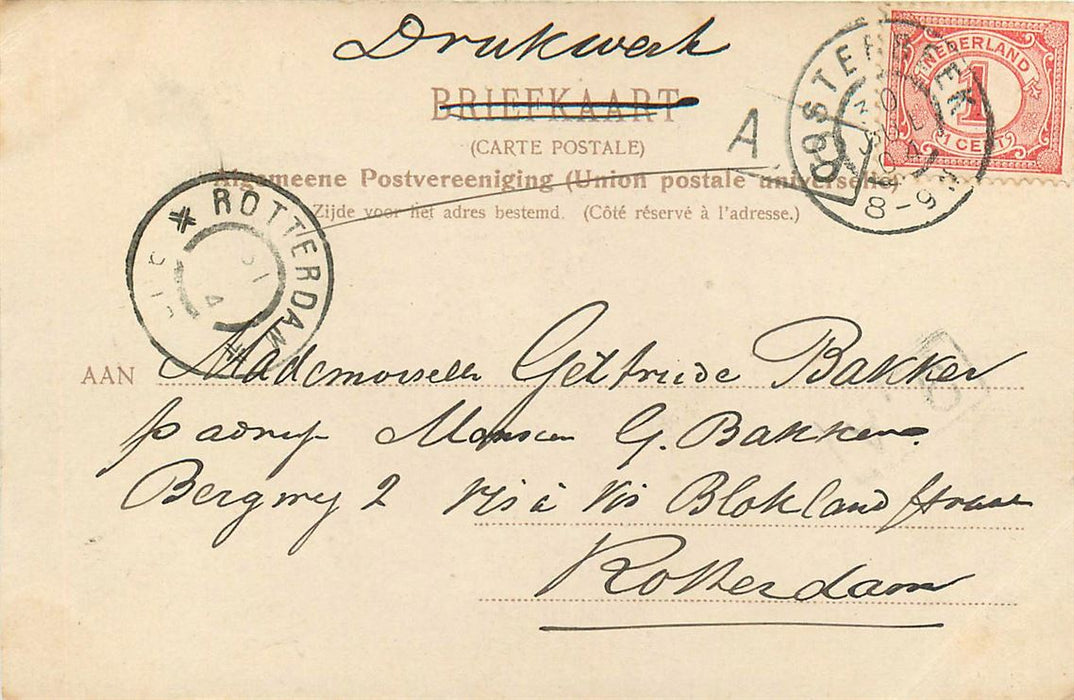 Drukwerk
BRIEFKAART
(CARTE POSTALE)
Algemeene Postvereeniging (Union postale universelle)
Zijde voor het adres bestemd. (Côté réservé à l'adresse.)
A
NEDERLAND
1
1 CENT
OOSTERBEEK
8-9
ROTTERDAM
4
AAN Mademoiselle Gertruide Bakker
p adres Monsieur G. Bakker.
Bergweg 2 vis à vis Bloklandstraat
Rotterdam